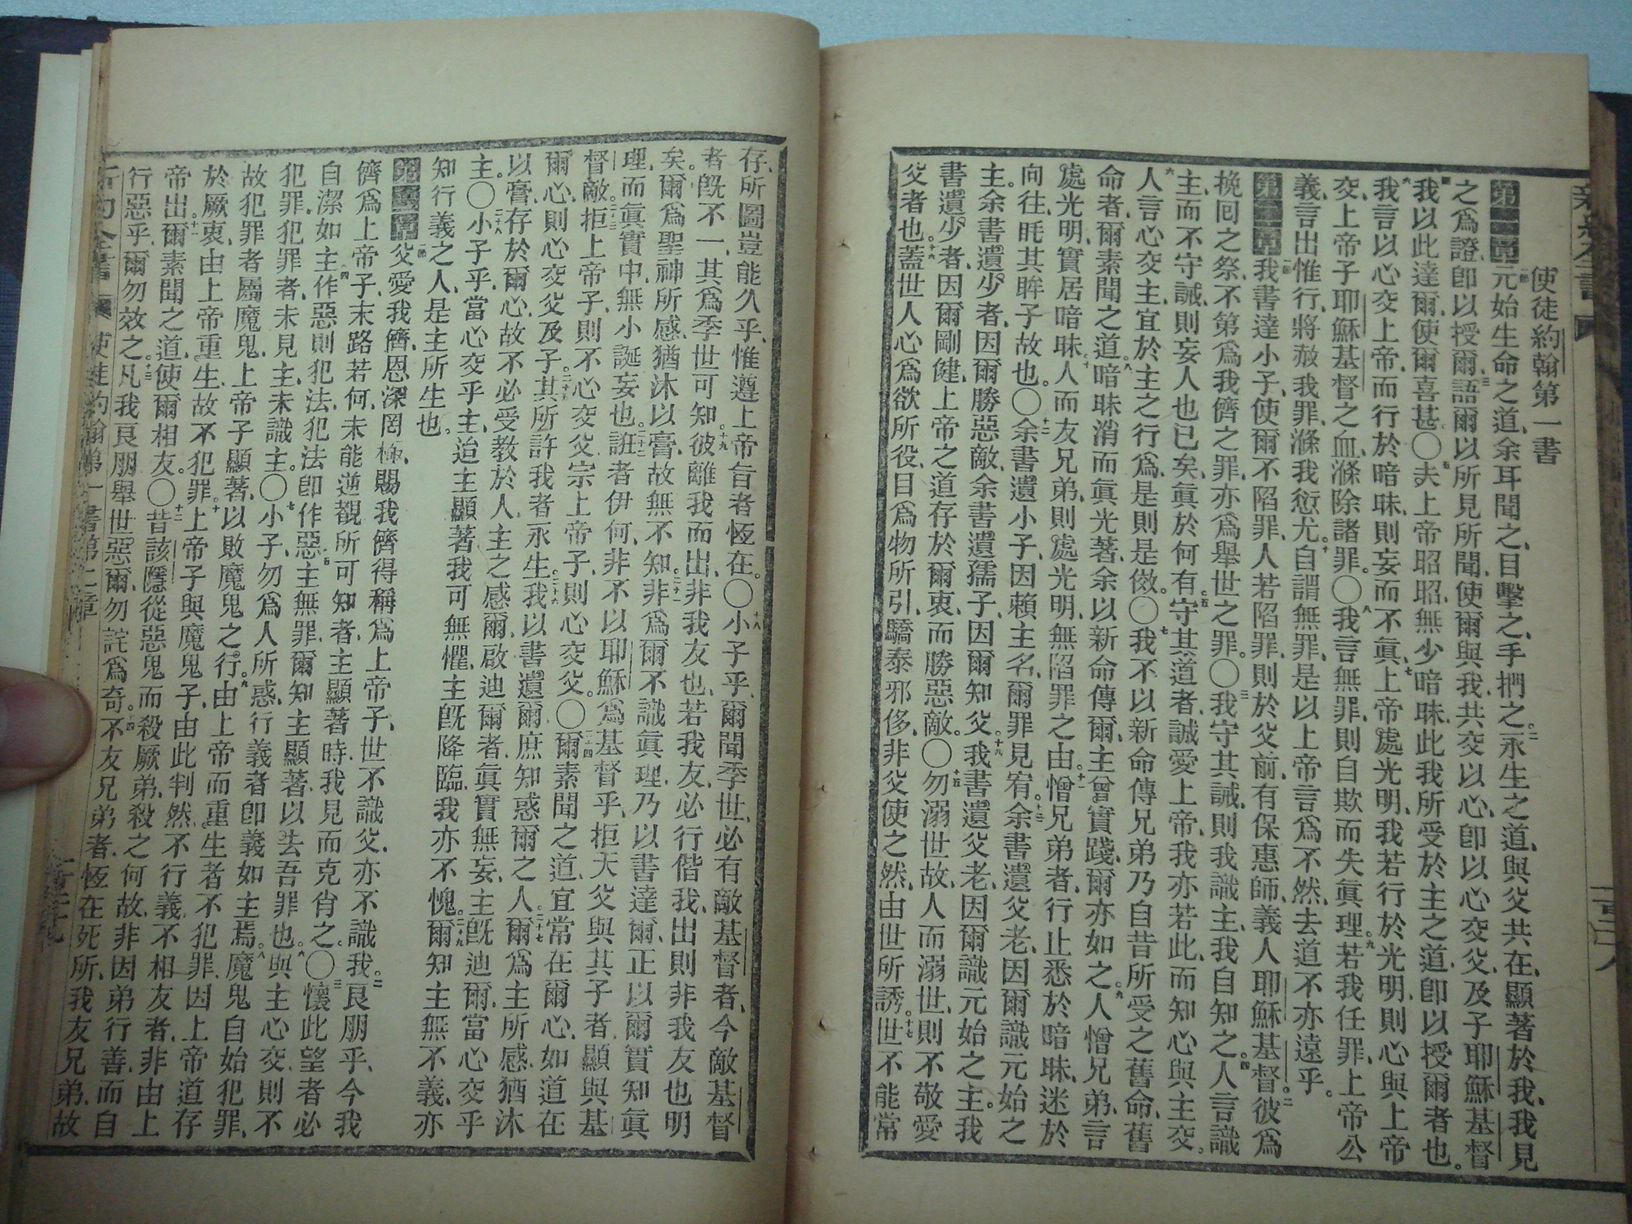 使徒約翰第一書
第一章元始生命之道、余耳聞之、目擊之、手捫之。二永生之道、與父共在、顯著於我、我見
之爲證、卽以授爾、三語爾以所見所聞、使爾與我共交以心、卽以心交父、及子耶穌基督
四我以此達爾、使爾喜甚〇五夫上帝昭昭、無少暗昧、此我所受於主之道、卽以授爾者也。
六我言以心交上帝、而行於暗昧、則妄而不眞、七上帝處光明、我若行於光明、則心與上帝
交、上帝子耶穌基督之血、滌除諸罪。〇八我言無罪、則自欺而失眞理。九若我任罪、上帝公
義、言出惟行、將赦我罪、滌我愆尤。十自謂無罪、是以上帝言爲不然、去道不亦遠乎。
第二章一我書達小子、使爾不陷罪、人若陷罪、則於父前、有保惠師、義人耶穌基督。二彼爲
挽回之祭、不第爲我儕之罪、亦爲舉世之罪。〇三我守其誡、則我識主、我自知之。四人言識
主、而不守誡、則妄人也已矣、眞於何有。五守其道者、誠愛上帝、我亦若此、而知心與主交。
六人言心交主、宜於主之行爲是則是傚。〇七我不以新命傳兄弟、乃自昔所受之舊命、舊
命者、爾素聞之道、八暗昧消而眞光著、余以新命傳爾、主曾實踐、爾亦如之、九人憎兄弟、言
處光明、實居暗昧、十人而友兄弟、則處光明、無陷罪之由。十一憎兄弟者、行止悉於暗昧、迷於
向往、眊其眸子故也。〇十二余書遺小子、因賴主名、爾罪見宥。十三余書遺父老、因爾識元始之
主、余書遺少者、因爾勝惡敵、余書遺孺子、因爾知父。十四我書遺父老、因爾識元始之主。我
書遺少者、因爾剛健、上帝之道、存於爾衷、而勝惡敵。〇十五勿溺世故、人而溺世、則不敬愛
父者也。十六蓋世人心爲欲所役、目爲物所引、驕泰邪侈、非父使之然、由世所誘。十七世不能常
存、所圖豈能久乎、惟遵上帝旨者恆在。〇十八小子乎、爾聞季世、必有敵基督者、今敵基督
者、旣不一、其爲季世可知。十九彼離我而出、非我友也、若我友、必行偕我、出則非我友也明
矣。二十爾爲聖神所感、猶沐以膏、故無不知、二十一非爲爾不識眞理、乃以書達爾、正以爾實知眞
理、而眞實中、無小誕妄也。二十二誑者伊何、非不以耶穌爲基督乎、拒天父與其子者、顯與基
督敵。二十三拒上帝子、則不心交父、宗上帝子、則心交父。〇二十四爾素聞之道、宜常在爾心、如道在
爾心、則心交父及子。二十五其所許我者永生。二十六我以書遺爾、庶知惑爾之人。二十七爾爲主所感、猶沐
以膏、存於爾心、故不必受敎於人、主之感爾、啟迪爾者、眞實無妄、主旣迪爾、當心交乎
主。〇二十八小子乎、當心交乎主、迨主顯著、我可無懼、主旣降臨、我亦不愧。二十九爾知主無不義、亦
知行義之人、是主所生也。
第三章一父愛我儕、恩深罔極、賜我儕得稱爲上帝子、世不識父、亦不識我。二良朋乎、今我
儕爲上帝子、末路若何、未能逆覩、所可知者、主顯著時、我見而克肖之。〇三懷此望者、必
自潔如主、四作惡則犯法、犯法卽作惡、五主無罪、爾知主顯著、以去吾罪也。六與主心交、則不
犯罪、犯罪者、未見主、未識主。〇七小子、勿爲人所惑、行義者卽義如主焉。八魔鬼自始犯罪、
故犯罪者、屬魔鬼、上帝子顯著、以敗魔鬼之行。九由上帝而重生者、不犯罪、因上帝道存
於厥衷、由上帝重生、故不犯罪。十上帝子與魔鬼子、由此判然、不行義、不相友者、非由上
帝出、十一爾素聞之道、使爾相友。〇十二昔該隱從惡鬼、而殺厥弟、殺之何故、非因弟行善、而自
行惡乎、爾勿效之、十三凡我良朋、舉世惡爾、勿詫爲奇。十四不友兄弟者、恆在死所、我友兄弟、故
新約全書 使徒約翰第一書第二章